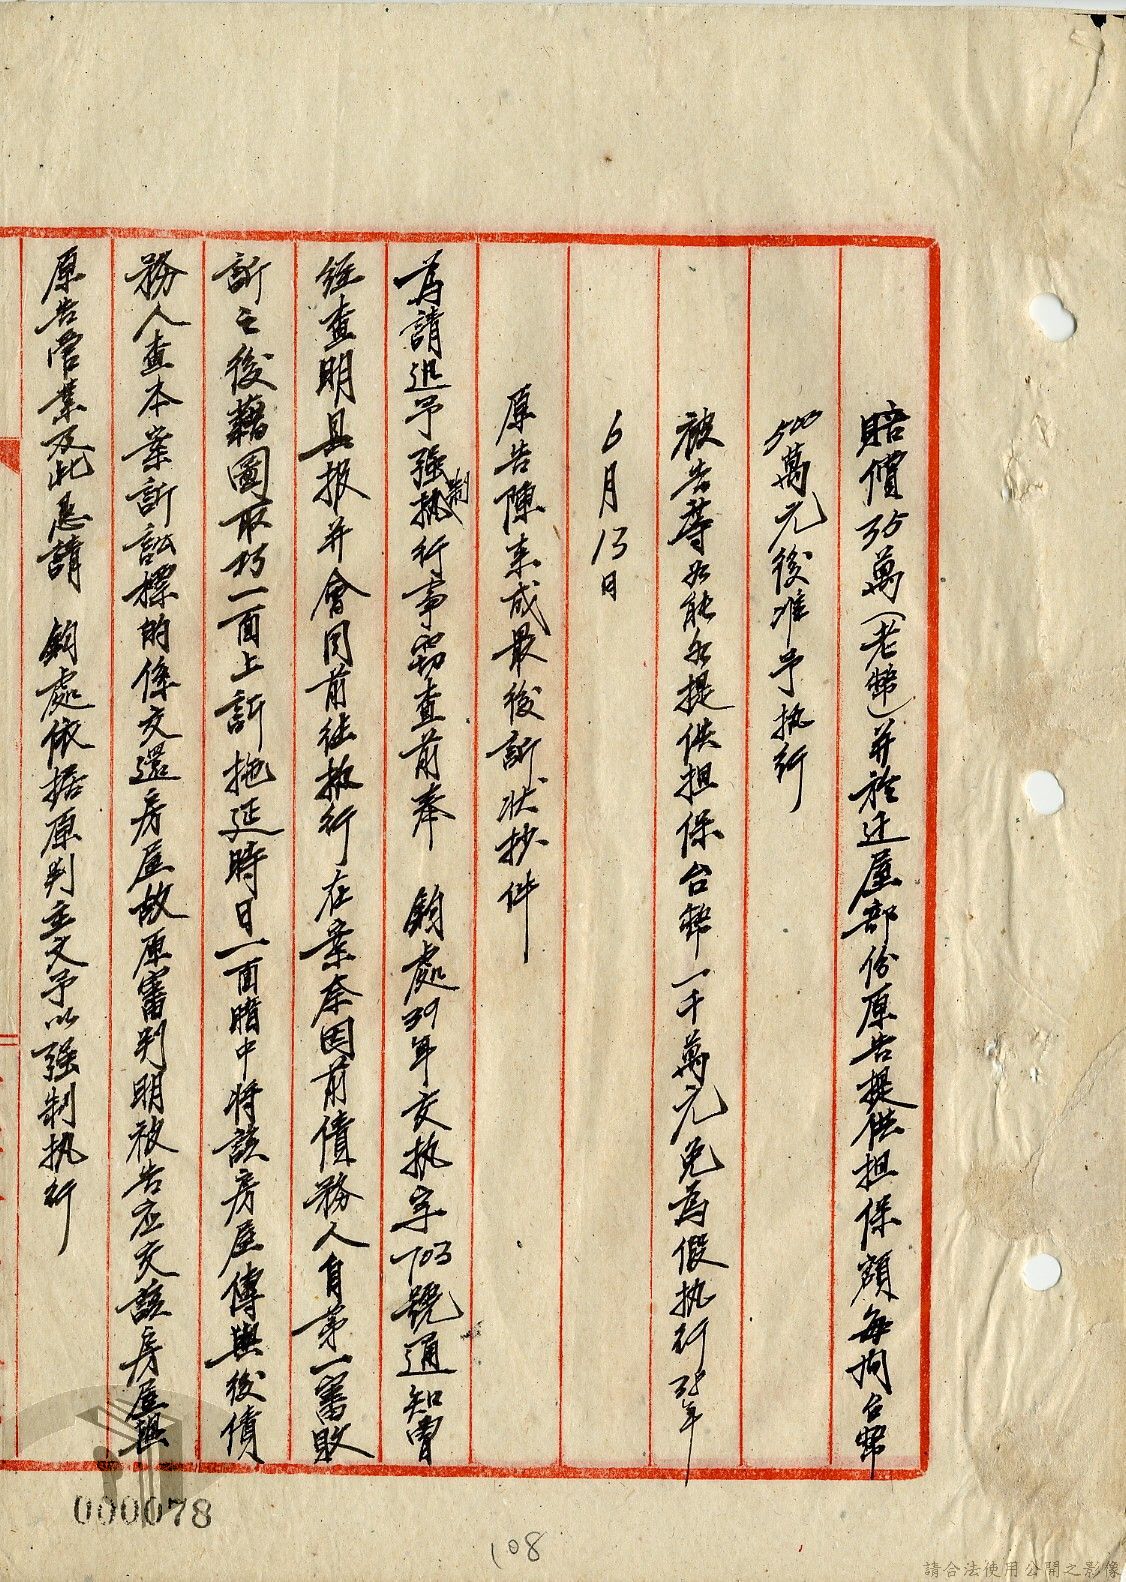 賠償35萬(老幣)并於迁屋部份原告提供担保額每拘台幣
500萬元後准予执行
被告等如能各提供担保台幣一千萬元免為假执行38年
6月13日
原告陳来成最後訴状抄件
為請迅予强制執行事竊查前奉 鈞處39年交执字703號通知曾
經查明具报并會同前往执行在案奈因前債務人自第一審敗
訴之後藉圖取巧一面上訴拖延時日一面暗中将該房屋傳與後債
務人查本案訴訟標的係交還房屋故原審判明被告应交該房屋與
原告管業为此恳請 鈞處依据原判主文予以强制执行
000078
108
請合法使用公開之影像